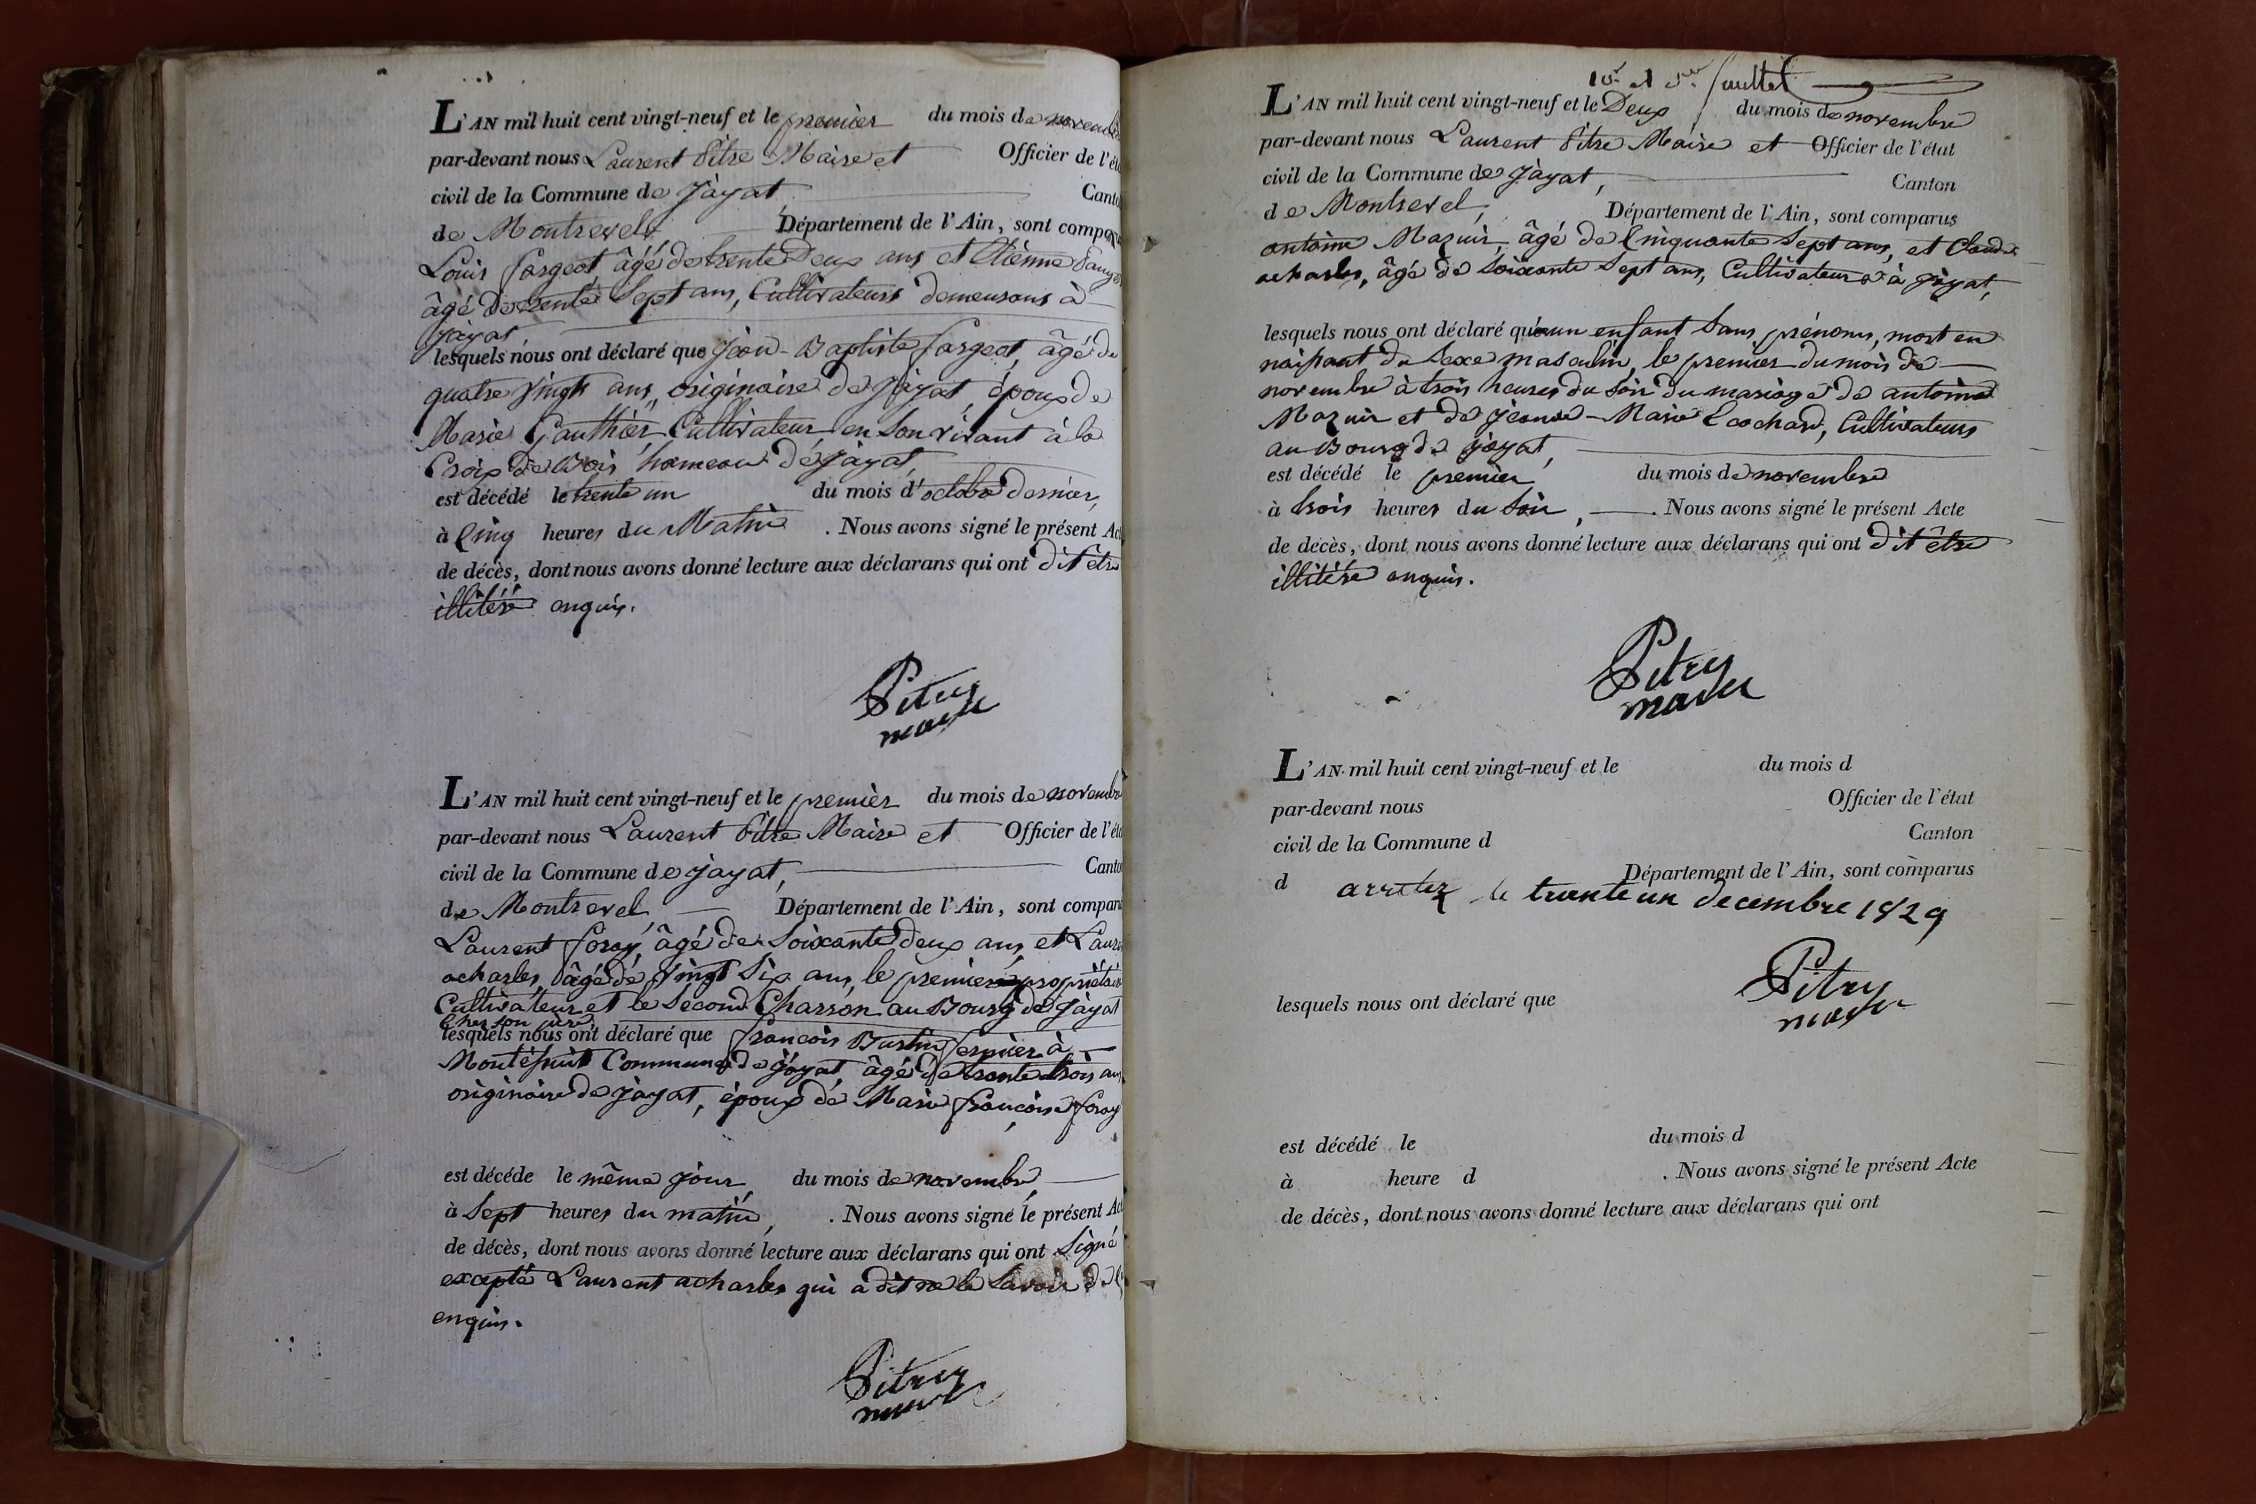 L'AN mil huit cent vingt-neuf et le premier du mois de novembre
par-devant nous Laurent Pitre Maire et Officier de l'éta
civil de la Commune de Jayat, Canto
de Montrevel, Département de l'Ain, sont compar
Louis fargeot, âgé de trente Deux ans et Etienne
âgé de trente Sept ans, Cultivateurs demeurans à
Jayat,
lesquels nous ont déclaré que Jean-Baptiste fargeot, âgé de
quatre vingts ans, originaire de Jayat, époux de
Marie Gauthier Cultivateur en Son vivant à la
Croix de Bois hameau de Jayat,
est décédé le trente un du mois d'octobre dernier,
à Cinq heures du Matin . Nous avons signé le présent Act
de décès, dont nous avons donné lecture aux déclarans qui ont dit être
illitéré enquis.
Pitre
maire
L'AN mil huit cent vingt-neuf et le premier du mois de novembre
par-devant nous Laurent Pitre Maire et Officier de l'éta
civil de la Commune de Jayat, Canto
de Montrevel Département de l'Ain, sont compar
Laurent foray, âgé de Soixante deux ans, et Laure
acharles, âgé de vingt Six ans, le premier propriétaire
Cultivateur et le Second Charron au Bourg de Jayat
chez son père,
lesquels nous ont déclaré que françois Burtin fermier à
Montefruit Commune de Jayat, âgé de trente trois ans
originaire de Jayat, époux de Marie françoise foray
est décéde le même jour du mois de novembre,
à Sept heures du matin, . Nous avons signé le présent Ac
de décès, dont nous avons donné lecture aux déclarans qui ont Signé
excepté Laurent acharles qui a dit ne le Savoir de ce
enquis.
Pitre
maire
10e et feuillet
L'AN mil huit cent vingt-neuf et le Deux du mois de novembre
par-devant nous Laurent Pitre Maire et Officier de l'état
civil de la Commune de Jayat, Canton
de Montrevel, Département de l'Ain, sont comparus
antoine Mazuir, âgé de Cinquante Sept ans, et Claude
acharles, âgé de Soixante Sept ans, Cultivateurs à Jayat,
lesquels nous ont déclaré qu'un enfant Sans prénoms, mort en
naissant du Sexe masculin, le premier du mois de
novembre à trois heures du Soir du mariage de antoine
Mazuir et de Jeanne-Marie Ecochard, Cultivateurs
au Bourg de Jayat,
est décédé le premier du mois de novembre
à trois heures du Soir, . Nous avons signé le présent Acte
de décès, dont nous avons donné lecture aux déclarans qui ont dit être
illitéré enquis.
Pitre
maire
L'AN mil huit cent vingt-neuf et le du mois d
par-devant nous Officier de l'état
civil de la Commune d Canton
d Département de l'Ain, sont comparus
arretez le trente un decembre 1829
Pitre
maire
lesquels nous ont déclaré que
est décédé le du mois d
à heure d . Nous avons signé le présent Acte
de décès, dont nous avons donné lecture aux déclarans qui ont